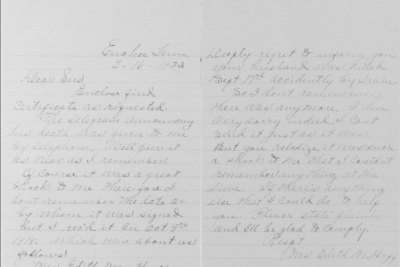 Eunlee Tenn
2-16-1923
Dear Sirs
Enclose find
Certificate as requested.
The telegram announcing
his death was given to me
by telephone. Will give it
as near as I remember
Of course it was a great
shock to me therefore I
dont remember the date or
by whom it was signed
but I rec'd it on Oct 9th
1918. which was about as
follows
Mrs Edith M.
Deeply regret to inform you
your husband was killed
Sept 17th accidently by train
So I dont remember if
there was any more. I am
very sorry indeed I cant
send it just as it was
But you realize it was such
a shock to me that I couldn't
remember anything at the
time. If there is anything
else that I could do to help
you. Please state plainly
and I'll be glad to comply.
Respt
Mrs Edith M.